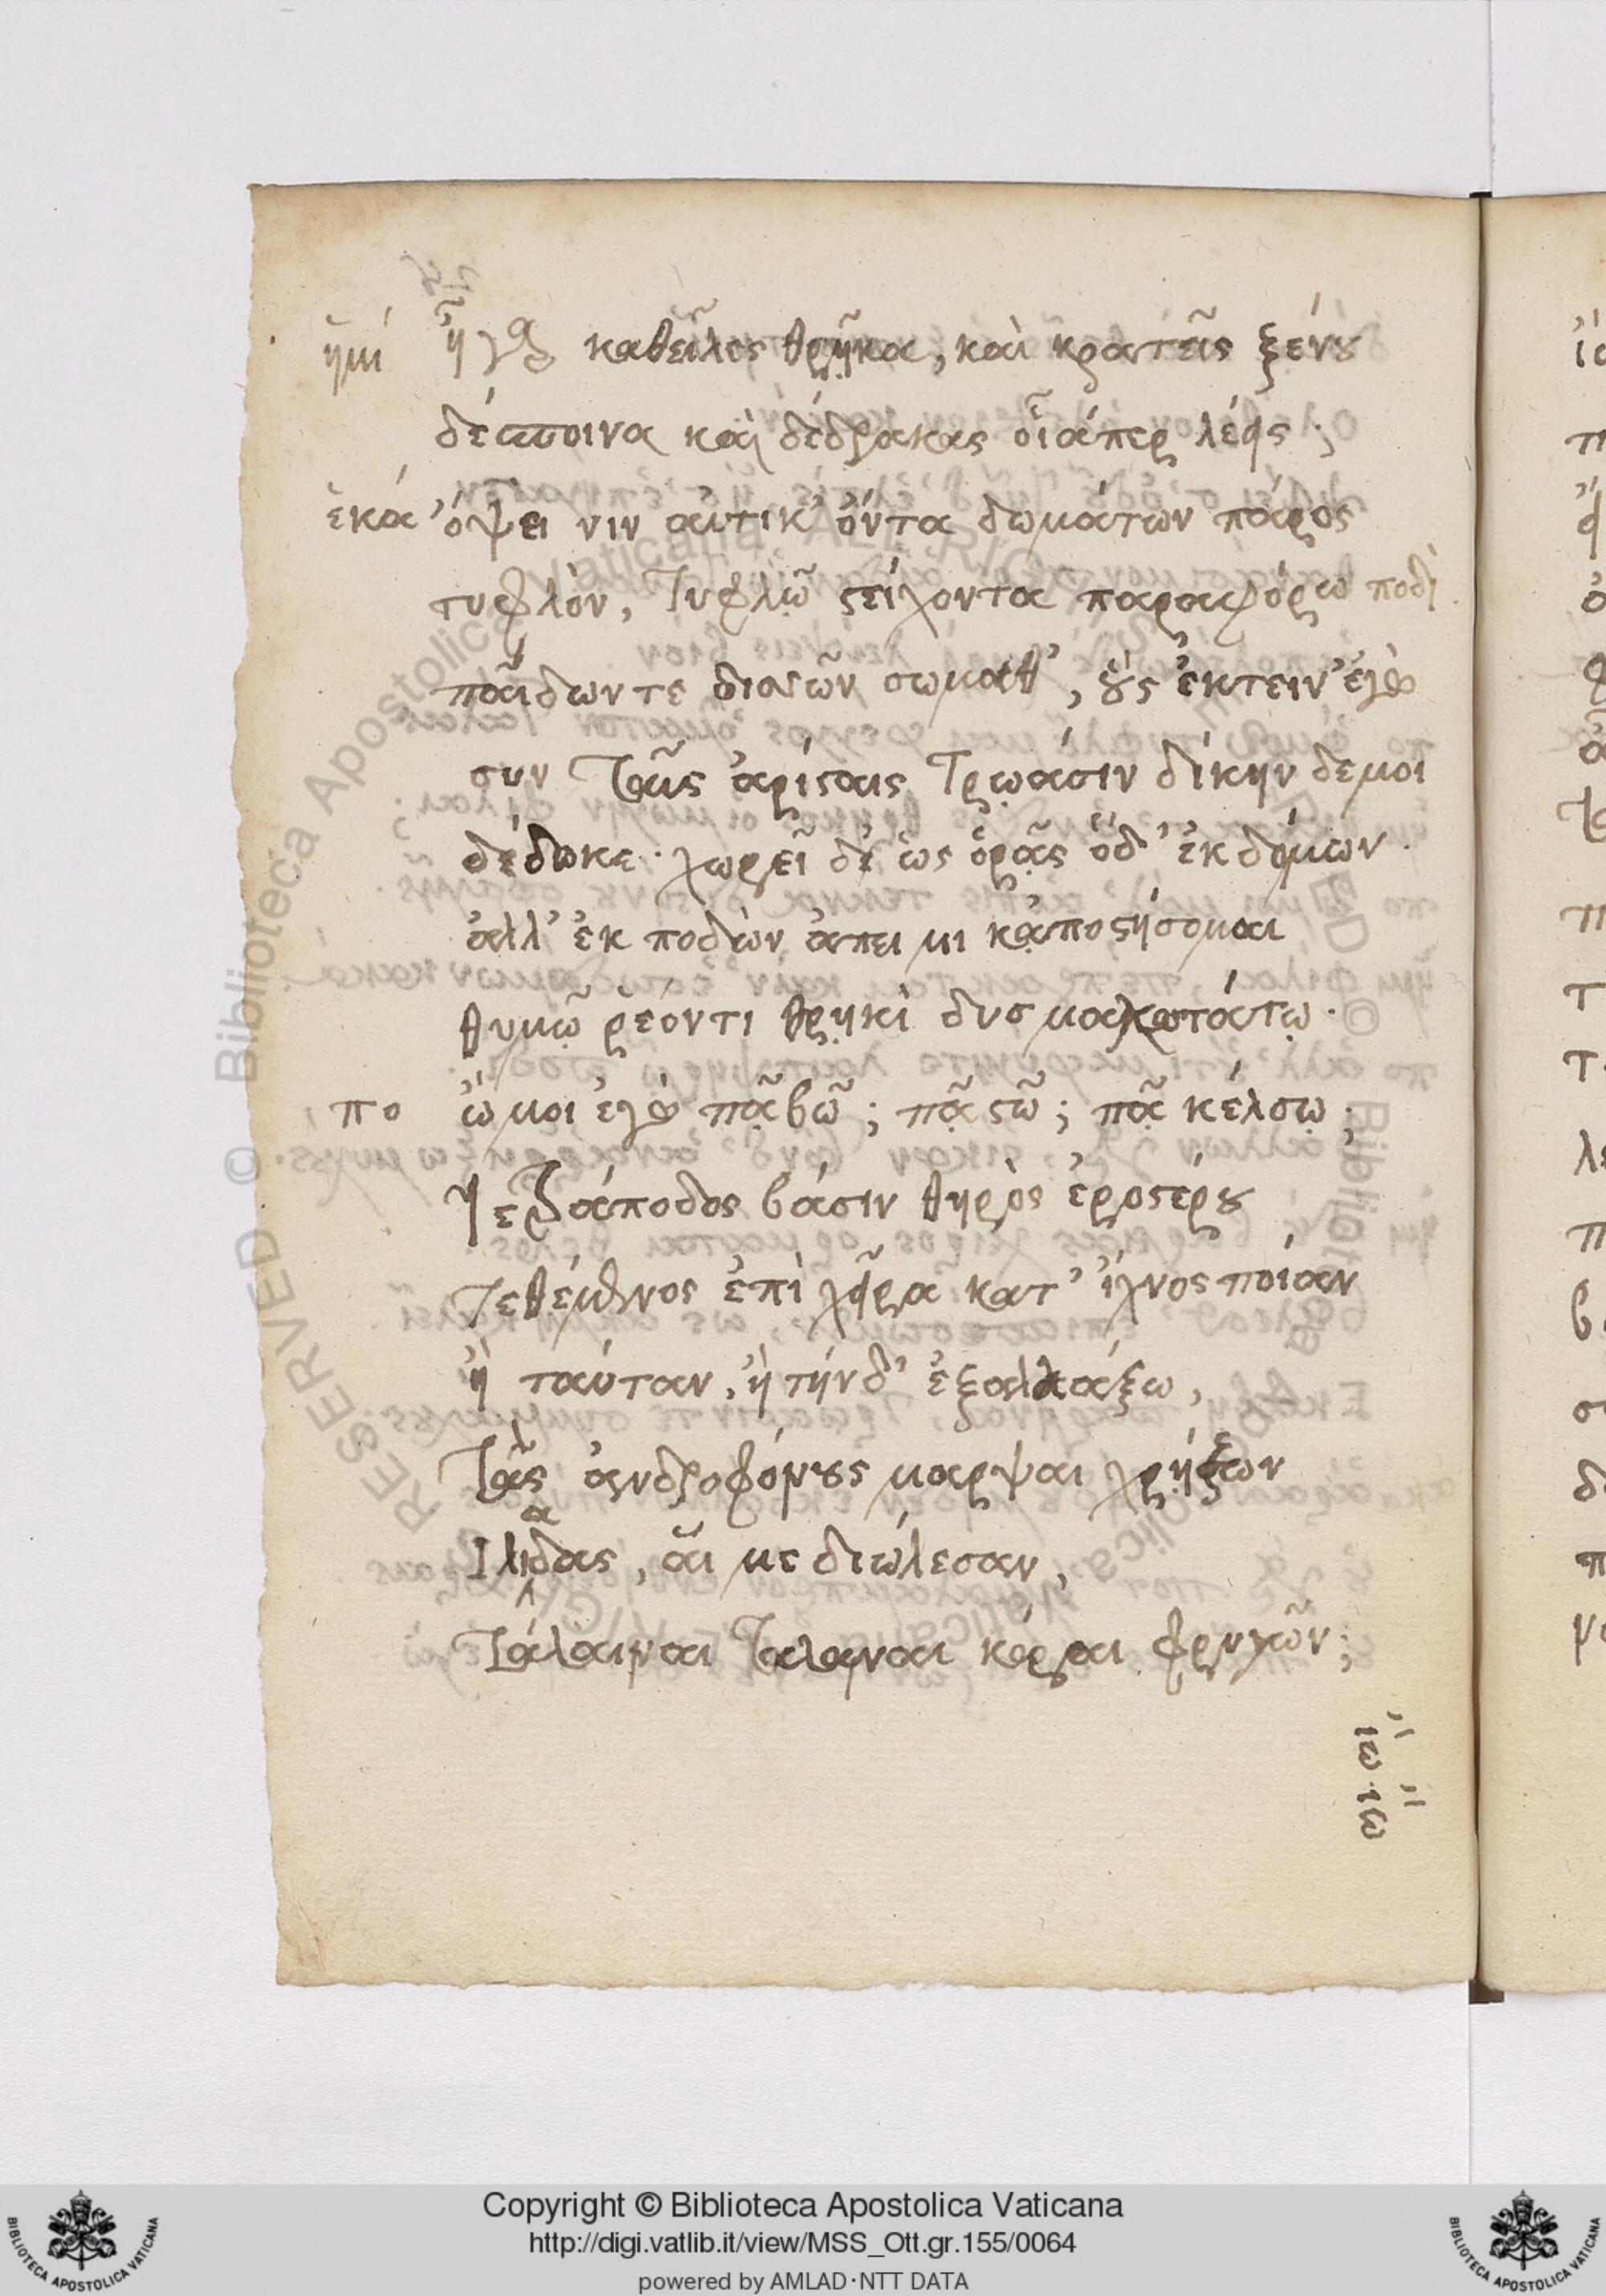 ἡμι ἦ γὰρ καθεῖλες θρῇκα, καὶ κρατεῖς ξένου
δέσποινα καὶ δέδρακας οἷάπερ λέγεις;
ἑκά ὄψει νιν αὐτίκ' ὄντα δωμάτων πάρος
τυφλὸν, τυφλῷ στείχοντα παραφόρω ποδὶ.
παίδων τε δισσῶν σώμαθ', οὓς ἔκτειν' ἐγὼ
σὺν ταῖς ἀρίσταις Τρῳάσιν δίκην δέμοι
δέδωκε· χωρεῖ δὲ ὡς ὁρᾷς ὅδ' ἐκ δόμων.
ἀλλ' ἐκ ποδὼν ἄπειμι κᾀποστήσομαι
θυμῷ ῥέοντι θρῃκὶ δυσμαχωτάτῳ.
πο ὤμοι ἐγὼ πᾷ βῶ; πᾷ στῶ; πᾷ κέλσω;
τετράποδος βάσιν θηρὸς ὀρεστέρου
τεθέμενος ἐπὶ χεῖρα κατ' ἴχνος ποίαν
ἢ ταύταν, ἢ τήνδ' ἐξαλλάξω,
τὰς ἀνδροφόνους μάρψαι χρῄζων
Ἰλιάδας, αἵ με διώλεσαν,
Τάλαιναι τάλαιναι κόραι φρυγῶν;
ἰὼ ἰὼ
Copyright © Biblioteca Apostolica Vaticana
http://digi.vatlib.it/view/MSS_Ott.gr.155/0064
powered by AMLAD·NTT DATA